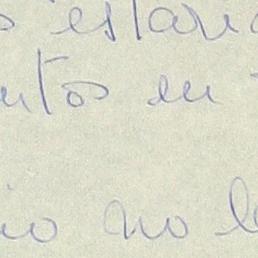 s estava
ntos em
io no le